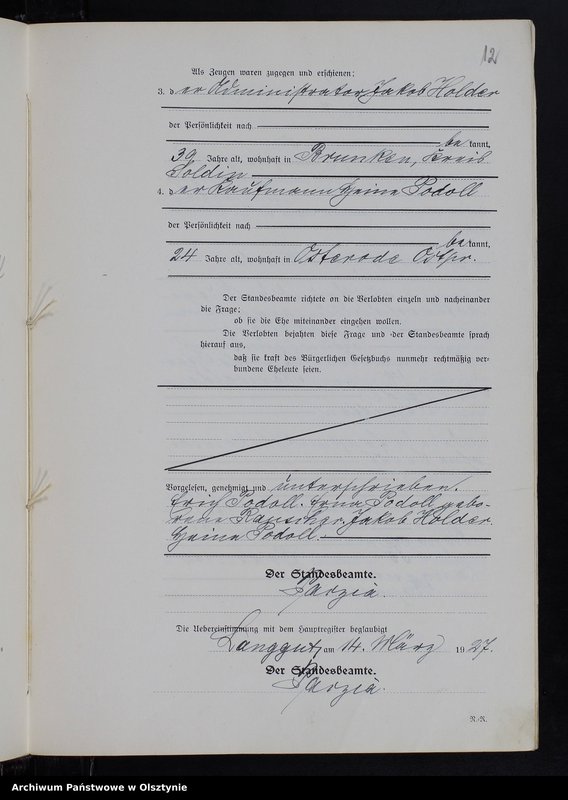 12
Als Zeugen waren zugegen und erschienen:
3. der Administrator Jakob Holder
der Persönlichkeit nach
bekannt,
39 Jahre alt, wohnhaft in Brunken, Kreis
Soldin
4. der Kaufmann Heinz Podoll
der Persönlichkeit nach
bekannt,
24 Jahre alt, wohnhaft in Osterode Ostpr.
Der Standesbeamte richtete an die Verlobten einzeln und nacheinander
die Frage:
ob sie die Ehe miteinander eingehen wollen.
Die Verlobten bejahten diese Frage und der Standesbeamte sprach
hierauf aus,
daß sie kraft des Bürgerlichen Gesetzbuchs nunmehr rechtmäßig ver-
bundene Eheleute seien.
Vorgelesen, genehmigt und unterschrieben.
Erich Podoll. Erna Podoll gebo-
rene. Jakob Holder.
Heinz Podoll.
Der Standesbeamte.
Die Uebereinstimmung mit dem Hauptregister beglaubigt
Langgut, am 14. März 1927.
Der Standesbeamte.
R./R.
Archiwum Państwowe w Olsztynie